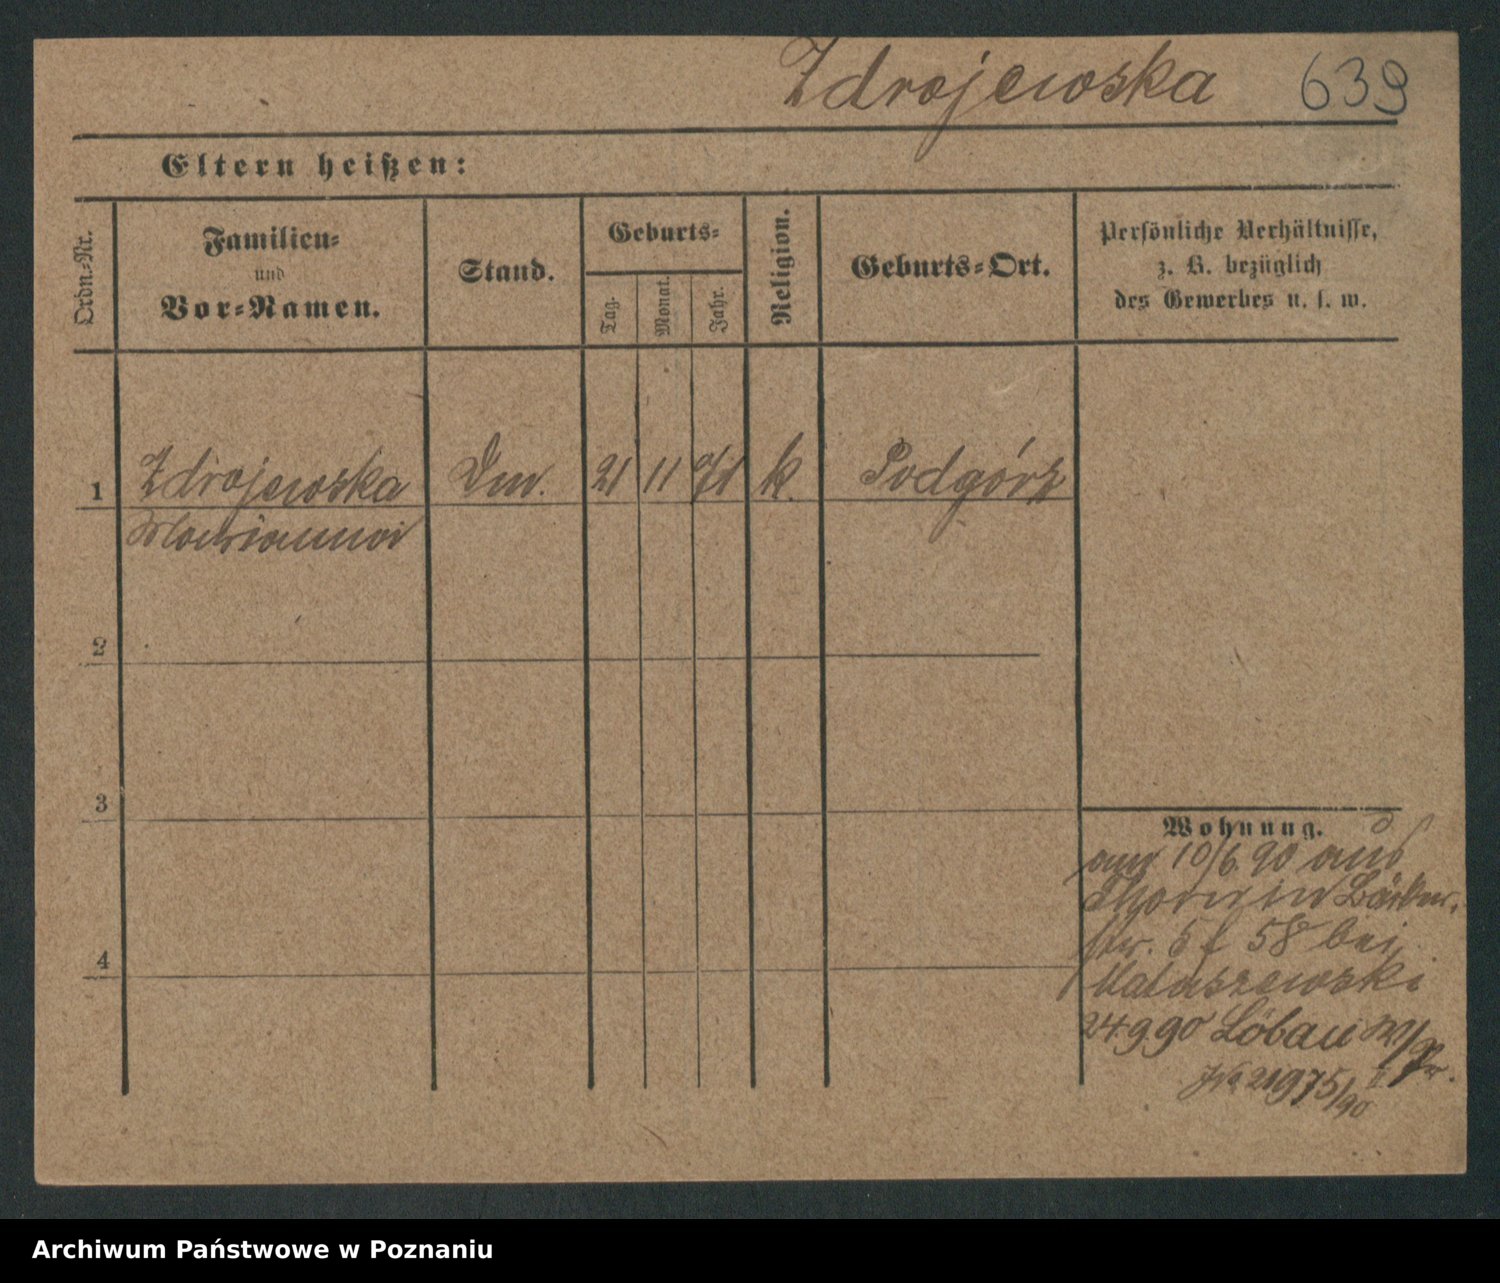 Zdrojewska 639
Eltern heißen:
Ordn.=Nr.
Familien=
und
Vor=Namen.
Stand.
Geburts=
Tag.
Monat.
Jahr.
Religion.
Geburts=Ort.
Persönliche Verhältnisse,
z. B. bezüglich
des Gewerbes u. s. w.
1 Zdrojewska 21 11 71 k. Podgórz
Marianna
2
3
4
Wohnung.
10/6. 90 aus
Thorn in Bäcker.
str. 5 58 bei
Mataszewski
24 9 90 Löbau W/Pr.
No 21975/90 II
Archiwum Państwowe w Poznaniu